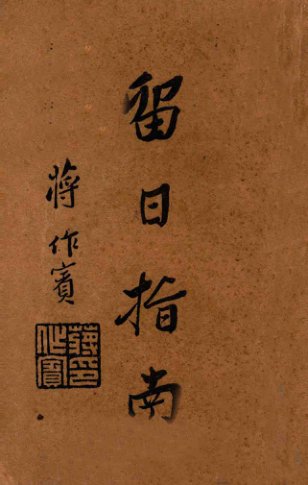 留日指南
蔣作賓
蔣作賓印